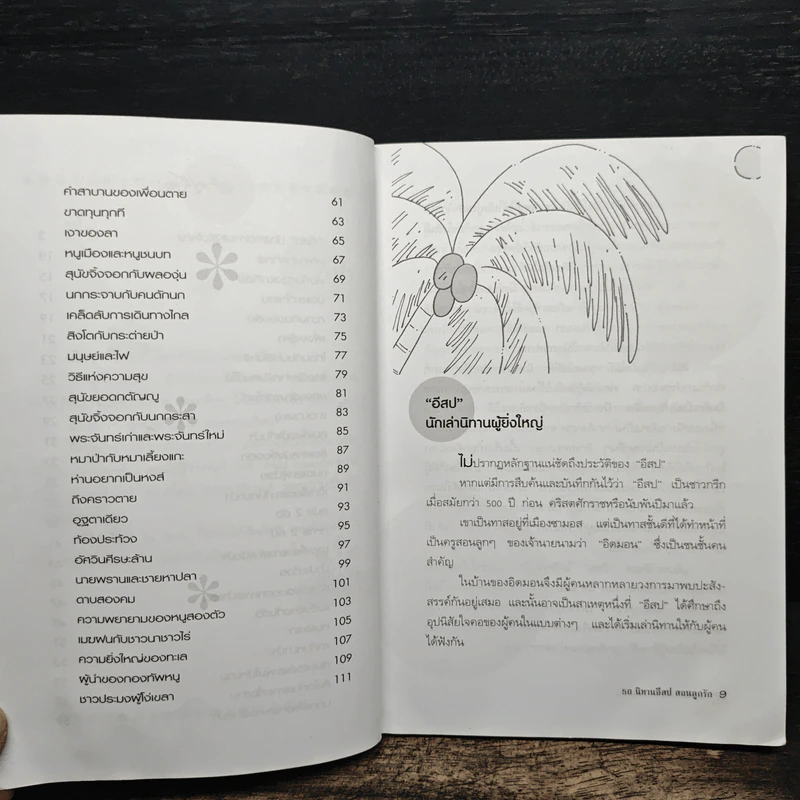 คำสาบานของเพื่อนตาย 61
ขาดทุนทุกที 63
เงาของลา 65
หนูเมืองและหนูชนบท 67
สุนัขจิ้งจอกกับพลองุ่น 69
นกกระจาบกับคนดักนก 71
เคล็ดลับการเดินทางไกล 73
สิงโตกับกระต่ายป่า 75
มนุษย์และไฟ 77
วิธีแห่งความสุข 79
สุนัขยอดกตัญญู 81
สุนัขจิ้งจอกกับนกกระสา 83
พระจันทร์เก่าและพระจันทร์ใหม่ 85
หมาป่ากับหมาเลี้ยงแกะ 87
ห่านอยากเป็นหงส์ 89
ถึงคราวตาย 91
อูฐตาเดียว 93
ท้องประท้วง 95
อัศวินศีรษะล้าน 97
นายพรานและชายหาปลา 99
ดาบสองคม 101
ความพยายามของหนูสองตัว 103
เมฆฝนกับชาวนาชาวไร่ 105
ความยิ่งใหญ่ของทะเล 107
ผู้นำของกองทัพหนู 109
ชาวประมงผู้โง่เขลา 111
“อีสป”
นักเล่านิทานผู้ยิ่งใหญ่
ไม่ปรากฏหลักฐานแน่ชัดถึงประวัติของ “อีสป”
หากแต่มีการสืบค้นและบันทึกกันไว้ว่า “อีสป” เป็นชาวกรีก
เมื่อสมัยกว่า 500 ปี ก่อน คริสตศักราชหรือนับพันปีมาแล้ว
เขาเป็นทาสอยู่ที่เมืองซามอส แต่เป็นทาสชั้นดีที่ได้ทำหน้าที่
เป็นครูสอนลูกๆ ของเจ้านายนามว่า “อิดมอน” ซึ่งเป็นชนชั้นคน
สำคัญ
ในบ้านของอิดมอนจึงมีผู้คนหลากหลายวงการมาพบปะสัง-
สรรค์กันอยู่เสมอ และนั่นอาจเป็นสาเหตุหนึ่งที่ “อีสป” ได้ศึกษาถึง
อุปนิสัยใจคอของผู้คนในแบบต่างๆ และได้เริ่มเล่านิทานให้กับผู้คน
ได้ฟังกัน
๖๓ นิทานอีสป สอนลูกรัก 9